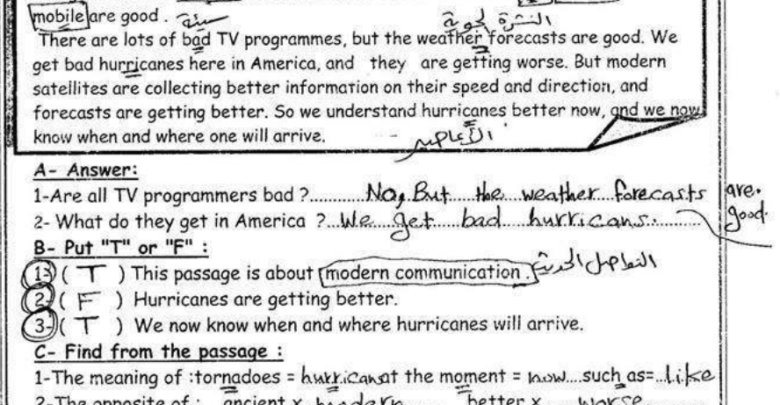 mobile are good . سيئة النشرة الجوية
There are lots of bad TV programmes, but the weather forecasts are good. We
get bad hurricanes here in America, and they are getting worse. But modern
satellites are collecting better information on their speed and direction, and
forecasts are getting better. So we understand hurricanes better now, and we now
know when and where one will arrive. الأعاصير
A- Answer:
1-Are all TV programmers bad ?............No, But the weather forecasts are good.
2- What do they get in America ?..We get bad hurricans.
B- Put "T" or "F" :
1- ( T ) This passage is about modern communication .
2- ( F ) Hurricanes are getting better.
3- ( T ) We now know when and where hurricanes will arrive.
C- Find from the passage :
1-The meaning of :tornadoes = hurricans at the moment = now....such as=..like
2-The opposite of : ancient x modern better x worse